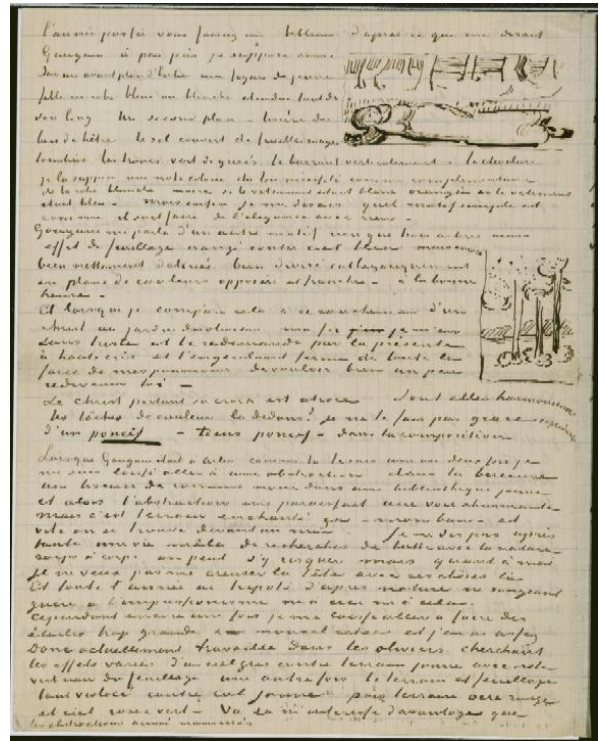 l'année passée vous faisiez un tableau d'après ce que me disait
Gauguin à peu près je suppose ainsi.
Sur un avant plan d'herbe une figure de jeune
fille en robe bleue ou blanche étendue tout de
son long Un second plan - lisière de
bois de hêtre le sol couvert de feuilles rouges
tombées les troncs vert de grisés le barrant verticalement - la chevelure
je la suppose une note colorée du ton nécessité comme complémentaire
de la robe blanche noire si le vêtement était blanc orangée si le vêtement
était bleu - Mais enfin je me disais quel motif simple et
comme il sait faire de l'élégance avec rien -
Gauguin me parla d'un autre motif rien que trois arbres
effet de feuillage orangé contre ciel bleu mais
bien nettement délinés bien divisé catégoriquement
en plans de couleurs opposées et franches - à la bonne
heure -
Et lorsque je compare cela à ce cauchemar d'un
christ au jardin des oliviers ma foi je m'en
sens triste et te redemande par la présente
à hauts cris et t'engueulant ferme de toute la
force de mes poumons de vouloir bien un peu
redevenir toi -
Le Christ portant sa croix est atroce Sont elles harmonieuses
les taches de couleur là dedans? je ne te fais pas grâce
d'un poncif - tiens poncif - dans la composition
Lorsque Gauguin était à Arles comme tu le sais une ou deux fois je
me suis laissé aller à une abstraction dans la berceuse
une liseuse de romans noire dans une bibliothèque jaune
et alors l'abstraction me paraissait une voie charmante
mais c'est terrain enchanté ça - mon bon - et
vite on se trouve devant un mur Je ne dis pas après
toute une vie mâle de recherches de lutte avec la nature
corps à corps on peut s'y risquer mais quant à moi
je ne veux pas me creuser la tête avec ces choses là
Et toute l'année ai tripoté d'après nature ne songeant
guère à l'impressionisme ni à ceci ni à cela.
Cependant encore une fois je me laisse aller à faire des
étoiles trop grandes nouvel échec et j'en ai assez
Donc actuellement travaille dans les oliviers cherchant
les effets variés d'un ciel gris contre terrain jaune avec note
vert noir du feuillage une autre fois le terrain et feuillage
tout violacé contre ciel jaune puis terrain ocre rouge
et ciel rose vert - Va ça m'intéresse davantage que
les abstractions